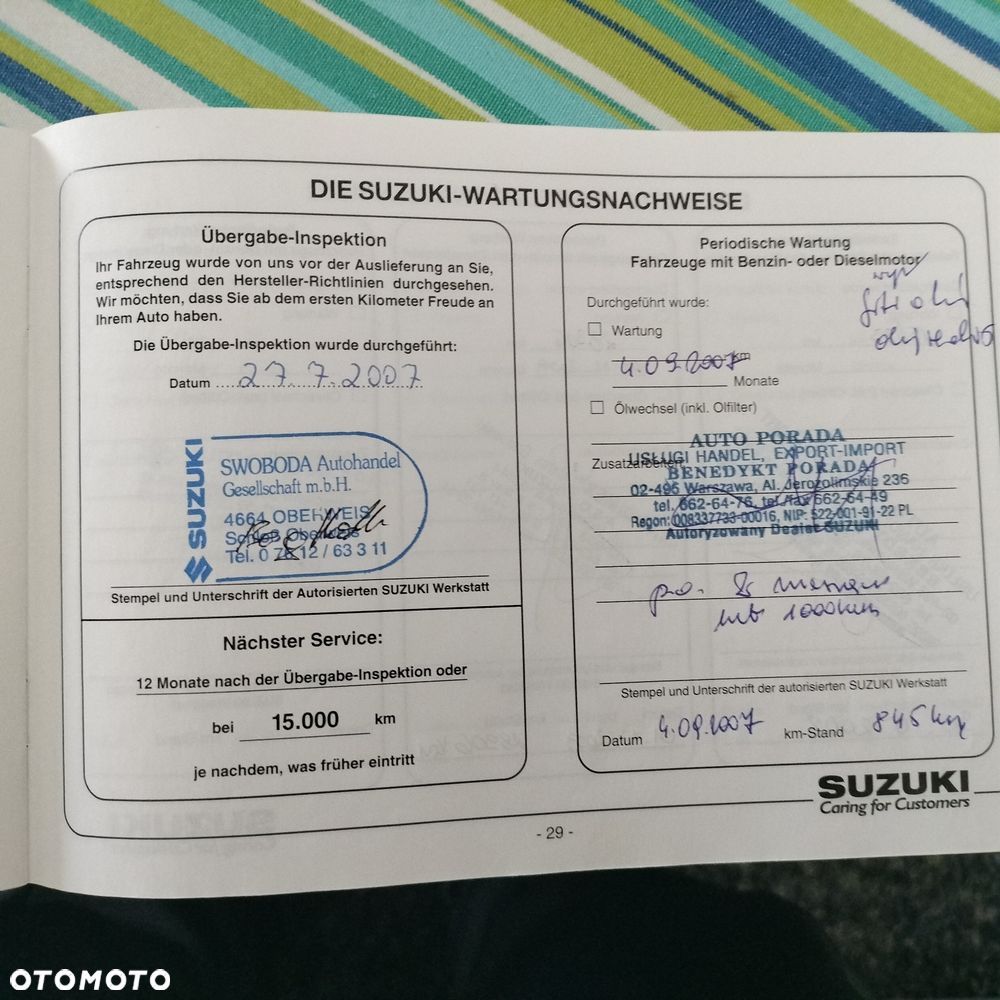 DIE SUZUKI-WARTUNGSNACHWEISE
Übergabe-Inspektion
Ihr Fahrzeug wurde von uns vor der Auslieferung an Sie,
entsprechend den Hersteller-Richtlinien durchgesehen.
Wir möchten, dass Sie ab dem ersten Kilometer Freude an
Ihrem Auto haben.
Die Übergabe-Inspektion wurde durchgeführt:
Datum 27.7.2007
SUZUKI
SWOBODA Autohandel
Gesellschaft m.b.H.
4664 OBERWEIS
Schloß
Tel. 0 76 12 / 63 3 11
Stempel und Unterschrift der Autorisierten SUZUKI Werkstatt
Nächster Service:
12 Monate nach der Übergabe-Inspektion oder
bei 15.000 km
je nachdem, was früher eintritt
Periodische Wartung
Fahrzeuge mit Benzin- oder Dieselmotor
Durchgeführt wurde:
Wartung
4.09.2007 km
Monate
Ölwechsel (inkl. Ölfilter)
Zusatzarbeiten:
AUTO PORADA
USŁUGI HANDEL, EXPORT-IMPORT
BENEDYKT PORADA
02-495 Warszawa, Al. Jerozolimskie 236
tel. 662-64-76, tel./fax 662-64-49
Regon: 008337733-00016, NIP: 522-001-91-22 PL
Autoryzowany Dealer SUZUKI
1000km
Stempel und Unterschrift der autorisierten SUZUKI Werkstatt
Datum 4.09.2007 km-Stand 845 km
SUZUKI
Caring for Customers
- 29 -
OTOMOTO